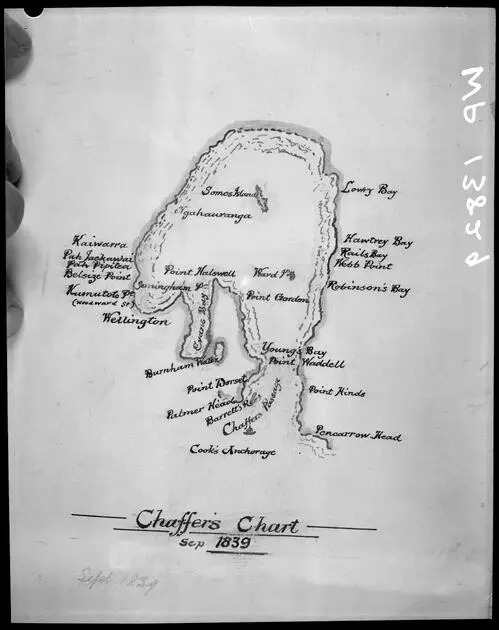 MP 13829
Lowry Bay
Somes Island
Ngahauranga
Kaiwarra
Pah Jackawai
Pah Pipitea
Belsize Point
Kumutoto Pt
(Woodward St)
Wellington
Hawtrey Bay
Rails Bay
Webb Point
Robinson's Bay
Point Halswell
Ward Is
Point Gordon
Evans Bay
Young's Bay
Point Waddell
Burnham Water
Point Dorset
Palmer Head
Barrett's Rfs
Chaffers Passage
Point Hinds
Pencarrow Head
Cook's Anchorage
Chaffers Chart
Sep 1839
Sept 1839